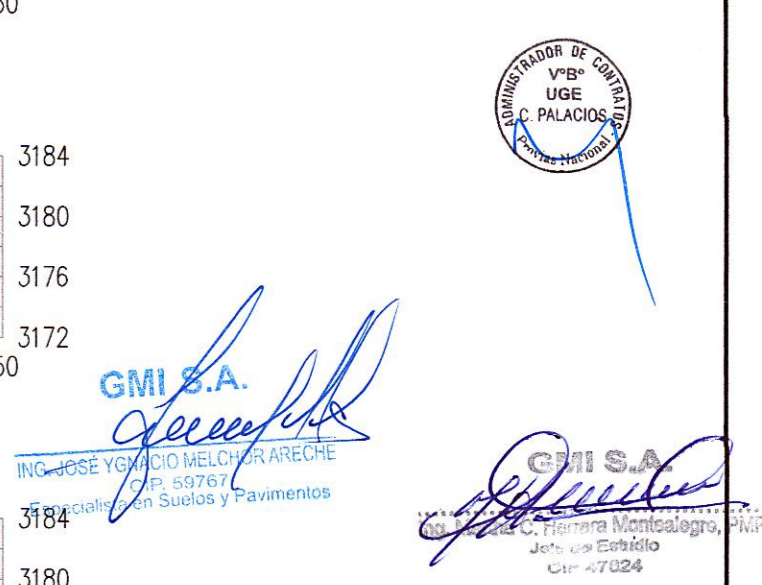 ADMINISTRADOR DE CONTRATOS
V°B°
UGE
C. PALACIOS
Provias Nacional
3184
3180
3176
3172
GMI S.A.
ING. JOSÉ YGNACIO MELCHOR ARECHE
CIP. 59767
Especialista en Suelos y Pavimentos
GMI S.A.
Ing. C. Herrera Montealegro, PMP
Jefe de Estudio
CIP 47024
3184
3180